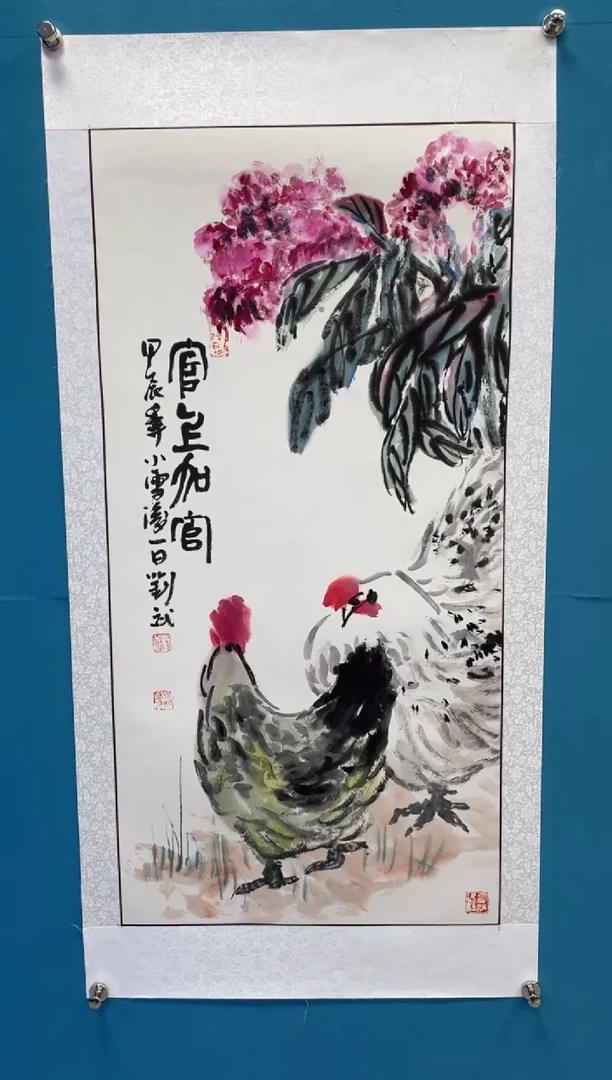 官上加官
甲辰季小雪後一日劉武